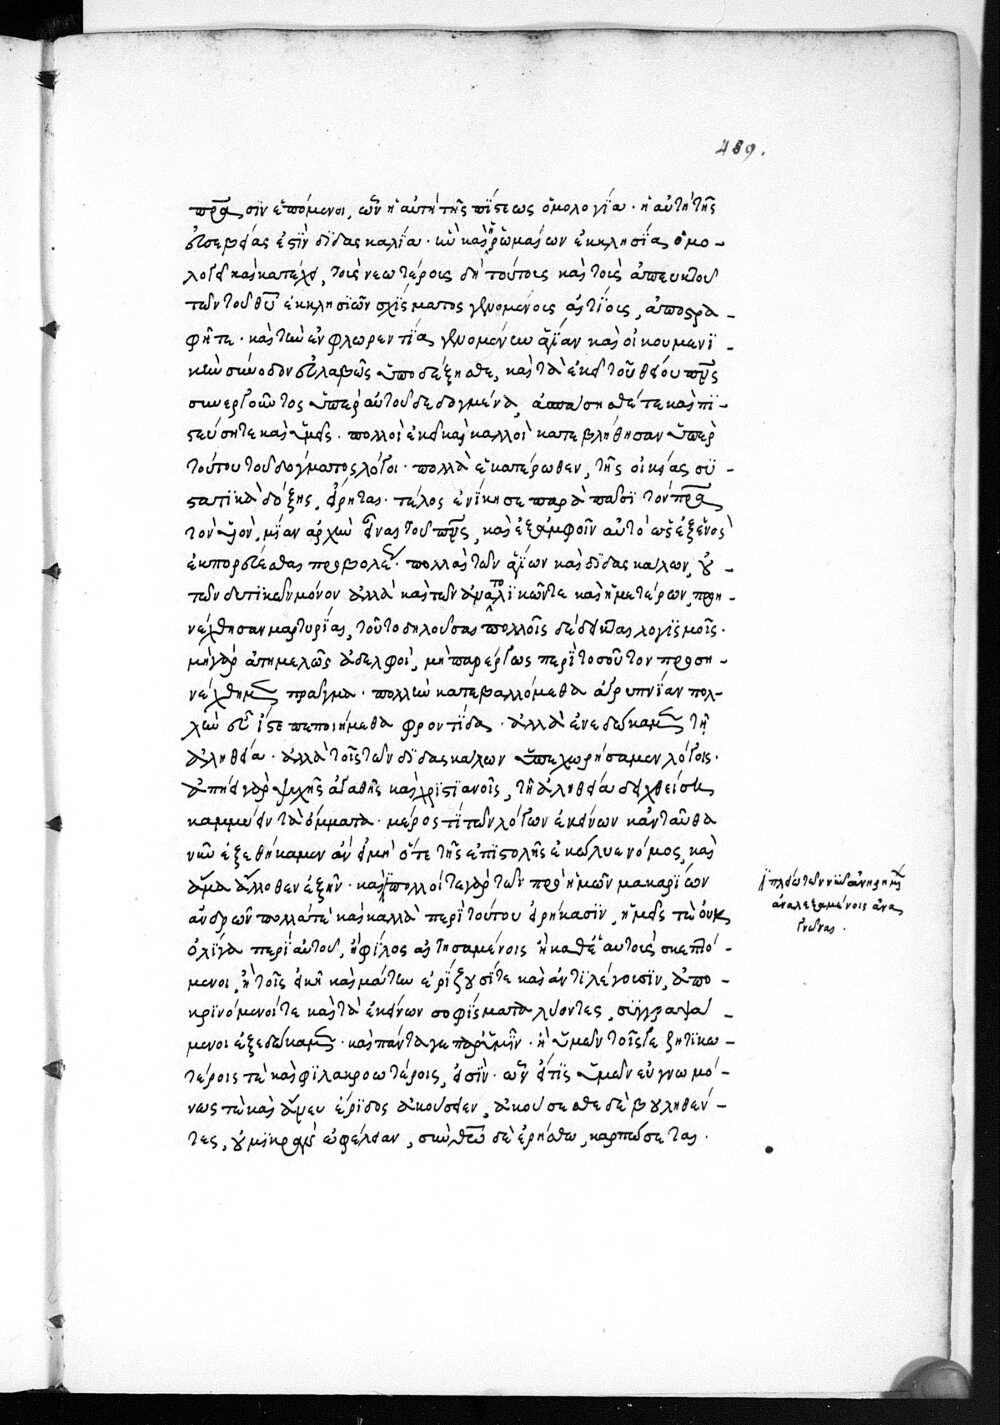 489.
πρᾶσιν ἑπόμενοι, ὧν ἡ αὐτὴ τῆς πίστεως ὁμολογία· ἡ αὐτὴ τῆς
εὐσεβείας ἐστὶν διδασκαλία· καὶ ῥωμαίων ἐκκλησία ὁμο-
λογεῖ καὶ κατέχει, τοῖς νεωτέροις δὴ τούτοις καὶ τοῖς ἀπευκτοῦ
τῶν τοῦ θεοῦ ἐκκλησιῶν σχίσματος γενομένοις αἰτίοις, ἀποστρα-
φῆτε· καὶ τὴν ἐν φλωρεντίᾳ γενομένην ἁγίαν καὶ οἰκουμενι-
κὴν σύνοδον εὐλαβῶς ὑποδέξησθε, καὶ τὰ ἐκεῖ τοῦ θείου πνεύματος
συνεργοῦντος ὑπὲρ αὐτοῦ δεδογμένα, ἀσπάσησθέ τε καὶ πι-
στεύσητε καὶ ὑμεῖς· πολλοὶ ἐκεῖ καὶ καλλοὶ κατεβλήθησαν ὑπὲρ
τούτου τοῦ δόγματος λόγοι· πολλὰ ἑκατέρωθεν, τῆς οἰκείας συ-
στατικὰ δόξης, εἴρηται· τέλος ἐνίκησε παρὰ πᾶσι τὸν πατέρα
τὸν υἱὸν, μίαν ἀρχὴν εἶναι τοῦ πνεύματος, καὶ ἐξ ἀμφοῖν αὐτὸ ὡς ἐξ ἑνὸς
ἐκπορεύεσθαι προβολέως· πολλαὶ τῶν ἁγίων καὶ διδασκάλων, οὐ
τῶν δυτικῶν μόνον ἀλλὰ καὶ τῶν ἀνατολικῶν τε καὶ ἡμετέρων, προη-
νέχθησαν μαρτυρίαι, τοῦτο δηλοῦσαι πολλοῖς δέδεικται λογισμοῖς·
μὴ γὰρ ἀπημελῶς ἀδελφοί, μὴ παρέργως περὶ τοσοῦτον προση-
νέχθημεν πρᾶγμα· πολλὴν κατεβαλλόμεθα ἀγρυπνίαν πολ-
λὴν εὖ ἴστε πεποιήμεθα φροντίδα· ἀλλὰ ἐνεδώκαμεν τῇ
ἀληθείᾳ· ἀλλὰ τοῖς τῶν διδασκάλων ὑπεχωρήσαμεν λόγοις·
ἀπῄει γὰρ ψυχῆς ἀγαθῆς καὶ χριστιανοῖς, τῇ ἀληθείᾳ δειχθείσῃ
καμμύειν τὰ ὄμματα· μέρος τι τῶν λόγων ἐκείνων κἀνταῦθα
νῦν ἐξεθήκαμεν ἂν εἰ μὴ ὅτε τῆς ἐπιστολῆς ἐκώλυε νόμος, καὶ
ἅμα ἄλλοθεν ἐξῆν· καὶ πολλοί τε γὰρ τῶν πρὸ ἡμῶν μακαρίων
ἀνδρῶν πολλά τε καὶ καλλὰ περὶ τούτου εἰρήκασιν, ἡμεῖς τε οὐκ
ὀλίγα περὶ αὐτοῦ, ἢ φίλος αἰτησαμένοις ἢ καθ᾽ ἑαυτοὺς σκεπτό-
μενοι, ἢ τοῖς εἰκῇ καὶ μάτην ἐρίζουσί τε καὶ ἀντιλέγουσιν, ἀπο-
κρινόμενοί τε καὶ τὰ ἐκείνων σοφίσματα λύοντες, συγγραψά-
μενοι ἐξεδώκαμεν· καὶ πάντα γε παρ᾽ ὑμῖν· ἢ ὑμῶν τοῖς γε ζητικω-
τέροις τε καὶ φιλακροωτέροις, εἰσίν· ὧν εἴ τις ὑμῶν εὐγνωμό-
νως τε καὶ ἄνευ ἔριδος ἀκούσειεν, ἀκούσασθε δὲ βουληθέν-
τες, οὐ μικρὰν ὠφέλειαν, σὺν θεῷ δὲ εἰρήσθω, καρπώσεται·